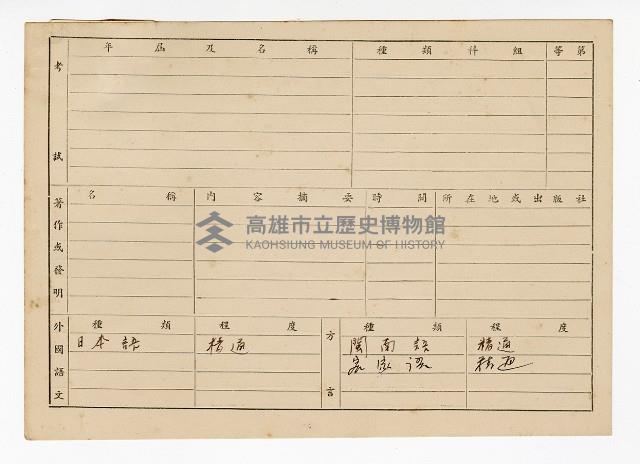 考試
年屆及名稱 種類科組 等第
著作或發明
名稱 內容摘要 時間 所在地或出版社
高雄市立歷史博物館
KAOHSIUNG MUSEUM OF HISTORY
外國語文
種類 程度
日本語 精通
方言
種類 程度
閩南語 精通
客家語 精通